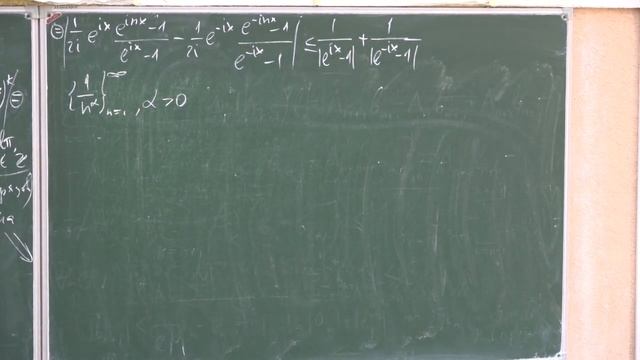 ⊜ |1/2i e^{ix} (e^{inx} - 1)/(e^{ix} - 1) - 1/2i e^{-ix} (e^{-inx} - 1)/(e^{-ix} - 1)| ≤ 1/|e^{ix} - 1| + 1/|e^{-ix} - 1|
{1/n^α}_{n=1}^∞, α > 0